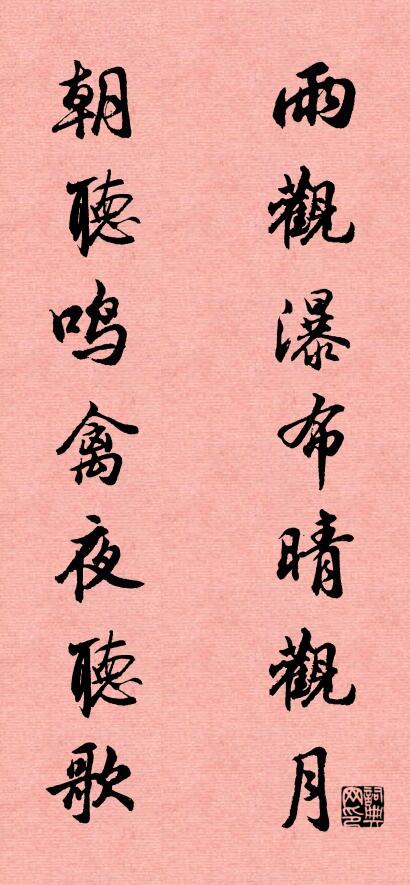 雨觀瀑布晴觀月
朝聽鳴禽夜聽歌
詞典网印